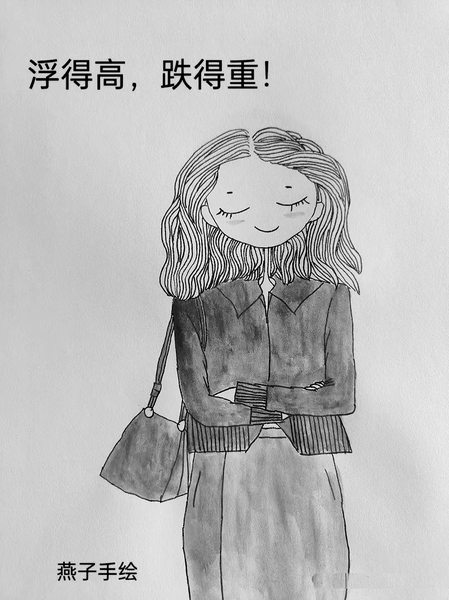 浮得高，跌得重！
燕子手绘